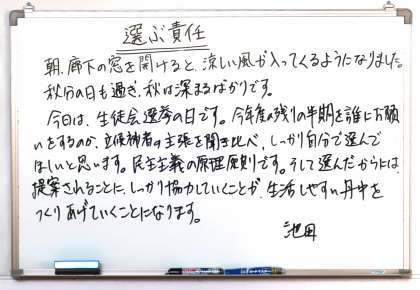 選ぶ責任
朝、廊下の窓を開けると、涼しい風が入ってくるようになりました。
秋分の日も過ぎ、秋は深まるばかりです。
今日は、生徒会選挙の日です。今年度の残りの半期を誰にお願
いをするのか、立候補者の主張を聞き比べ、しっかり自分で選んで
ほしいと思います。民主主義の原理原則です。そして選んだからには、
提案されることに、しっかり協力していくことが、生活しやすい丹中を
つくりあげていくことになります。
池田